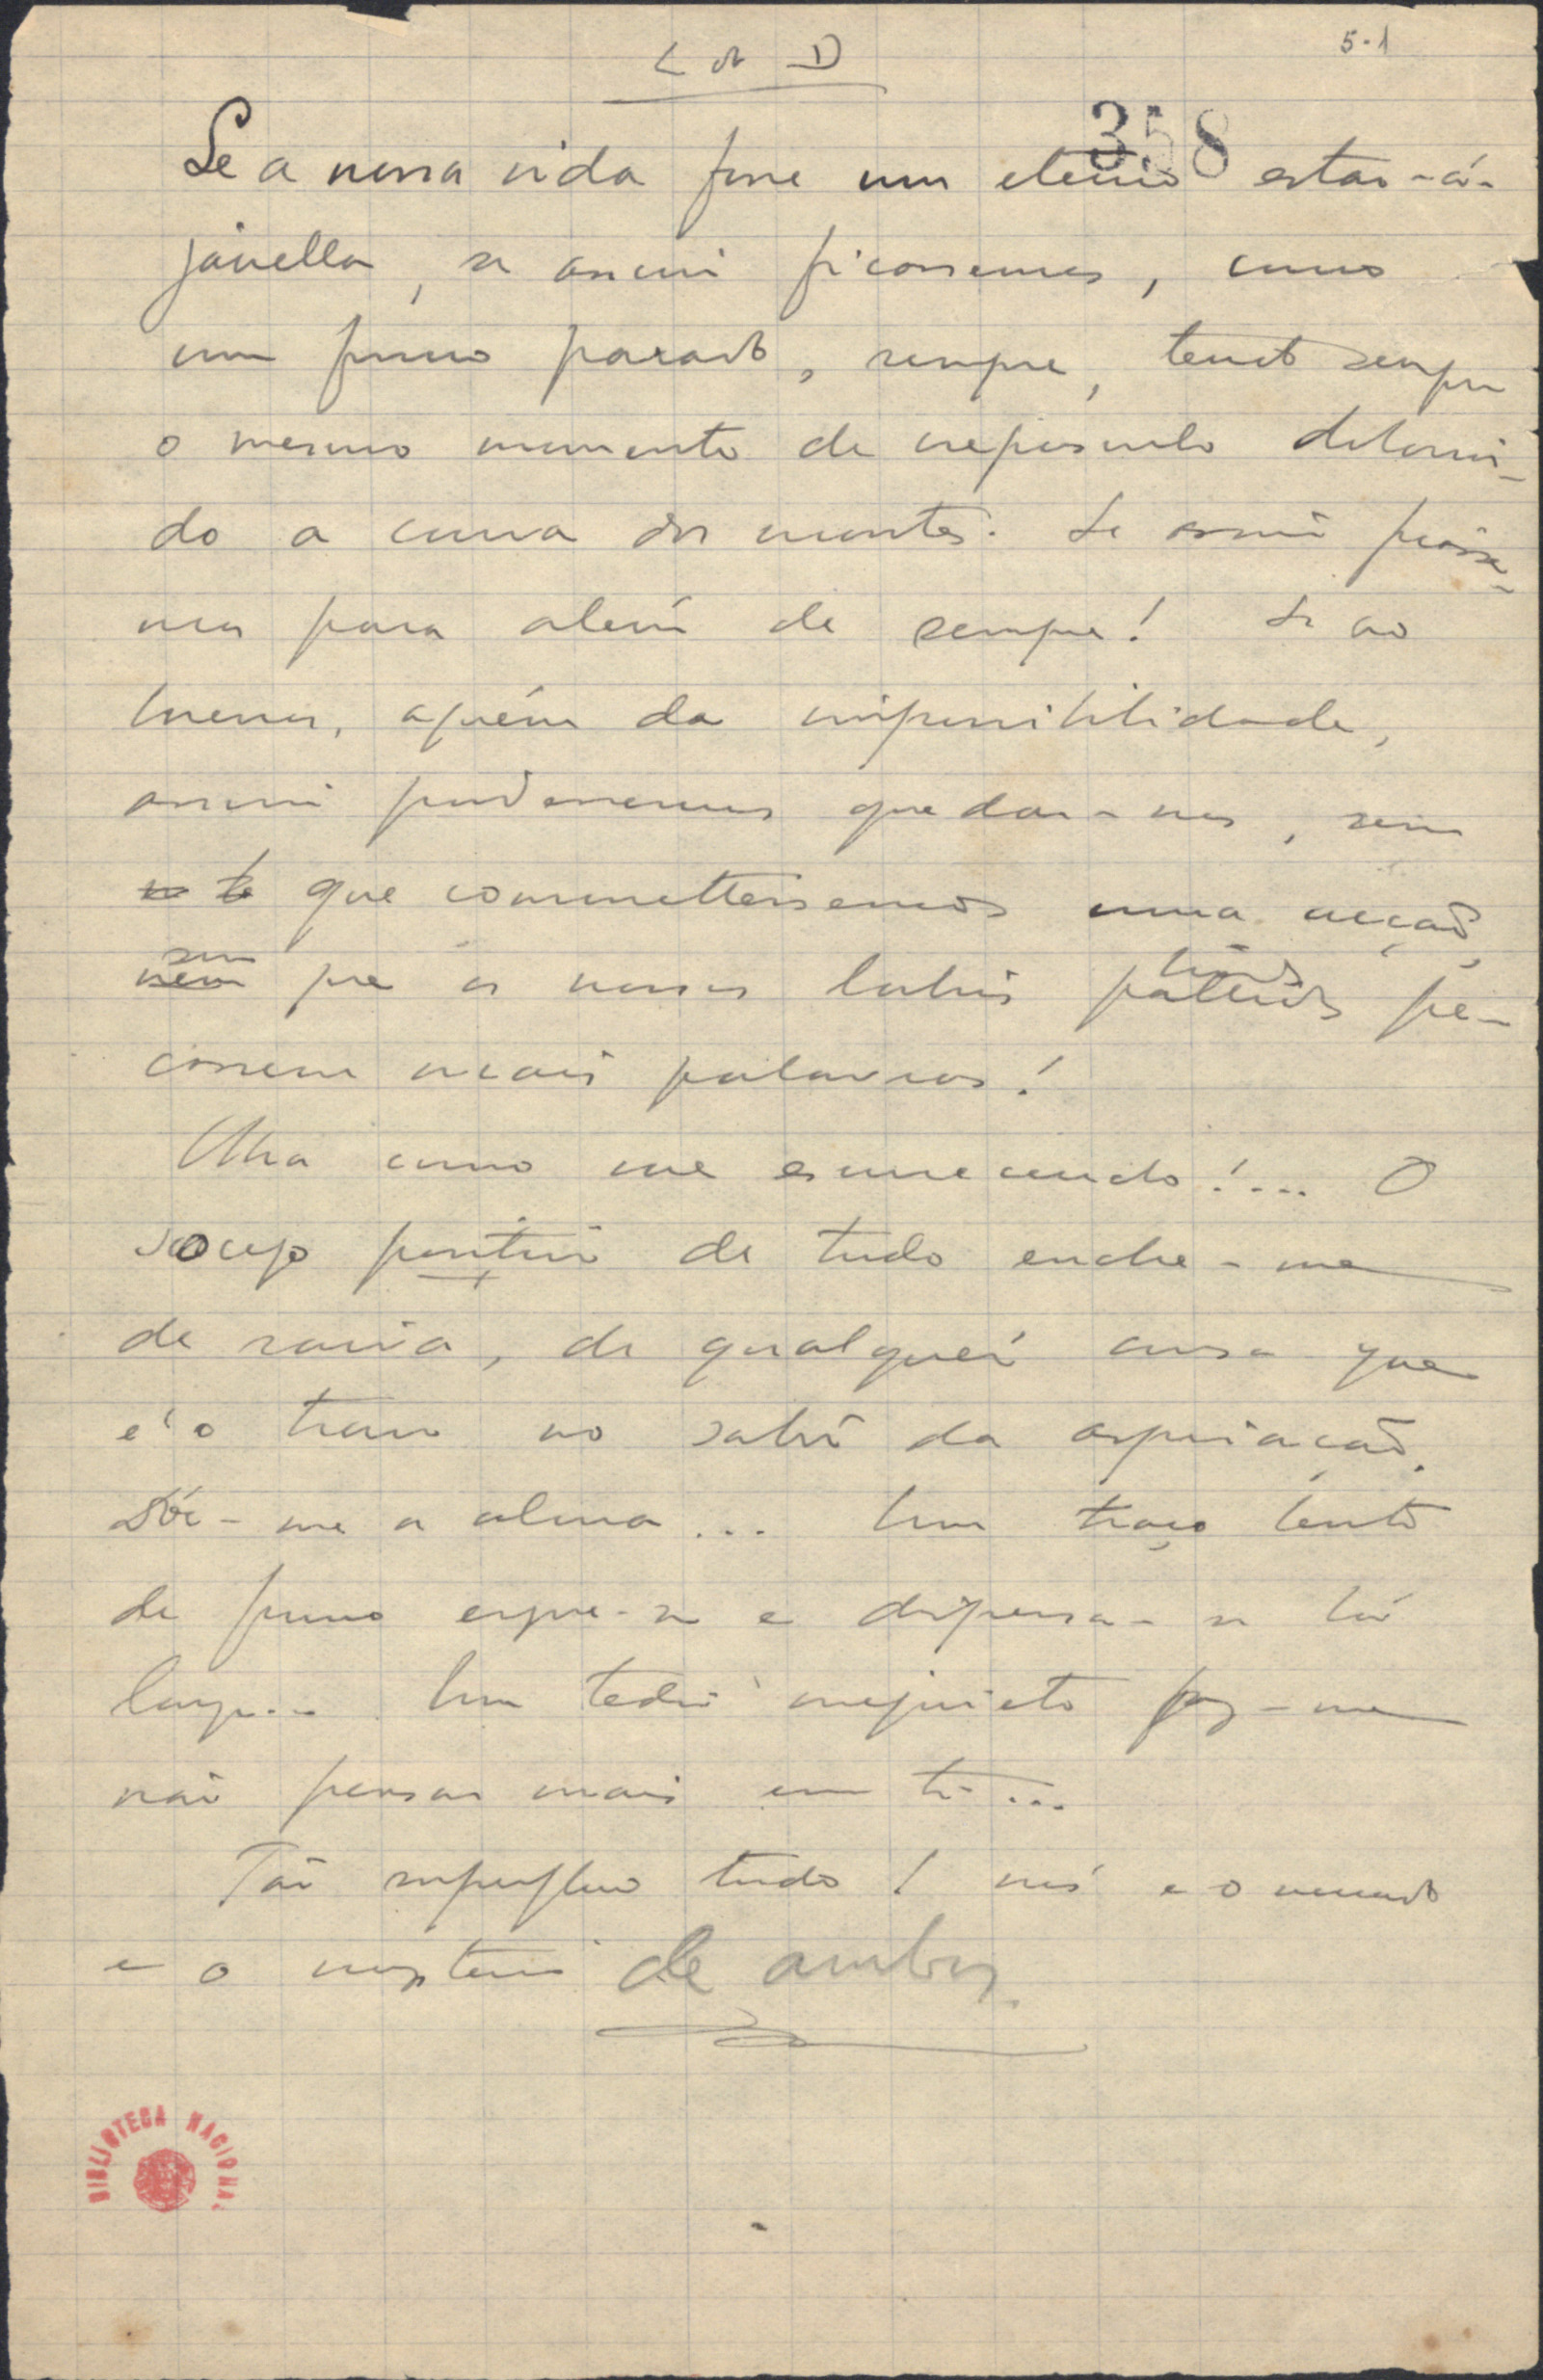 L do D
5-1
358
Se a nossa vida fosse um eterno estar-á-
janella, se assim ficassemos, como
um fumo parado, sempre, tendo sempre
o mesmo momento de crepusculo dolori-
do a curva dos montes. Se assim ficasse-
mos para além de sempre! Se ao
menos, aquém da impossibilidade,
assim pudessemos quedar-nos, sem
que commettessemos uma acção,
sem
nem que os nossos labios pallidos pec-
cassem mais palavras!
Olha como vae escurecendo!... O
socego positivo de tudo enche-me
de raiva, de qualquér cousa que
é o travo no sabôr da aspiração.
Dóe-me a alma... Um traço lento
de fumo ergue-se e dispersa-se lá
longe... Um tedio inquieto faz-me
não pensar mais em ti...
Tão superfluo tudo! nós e o mundo
e o mysterio de ambos.
BIBLIOTECA NACIONAL